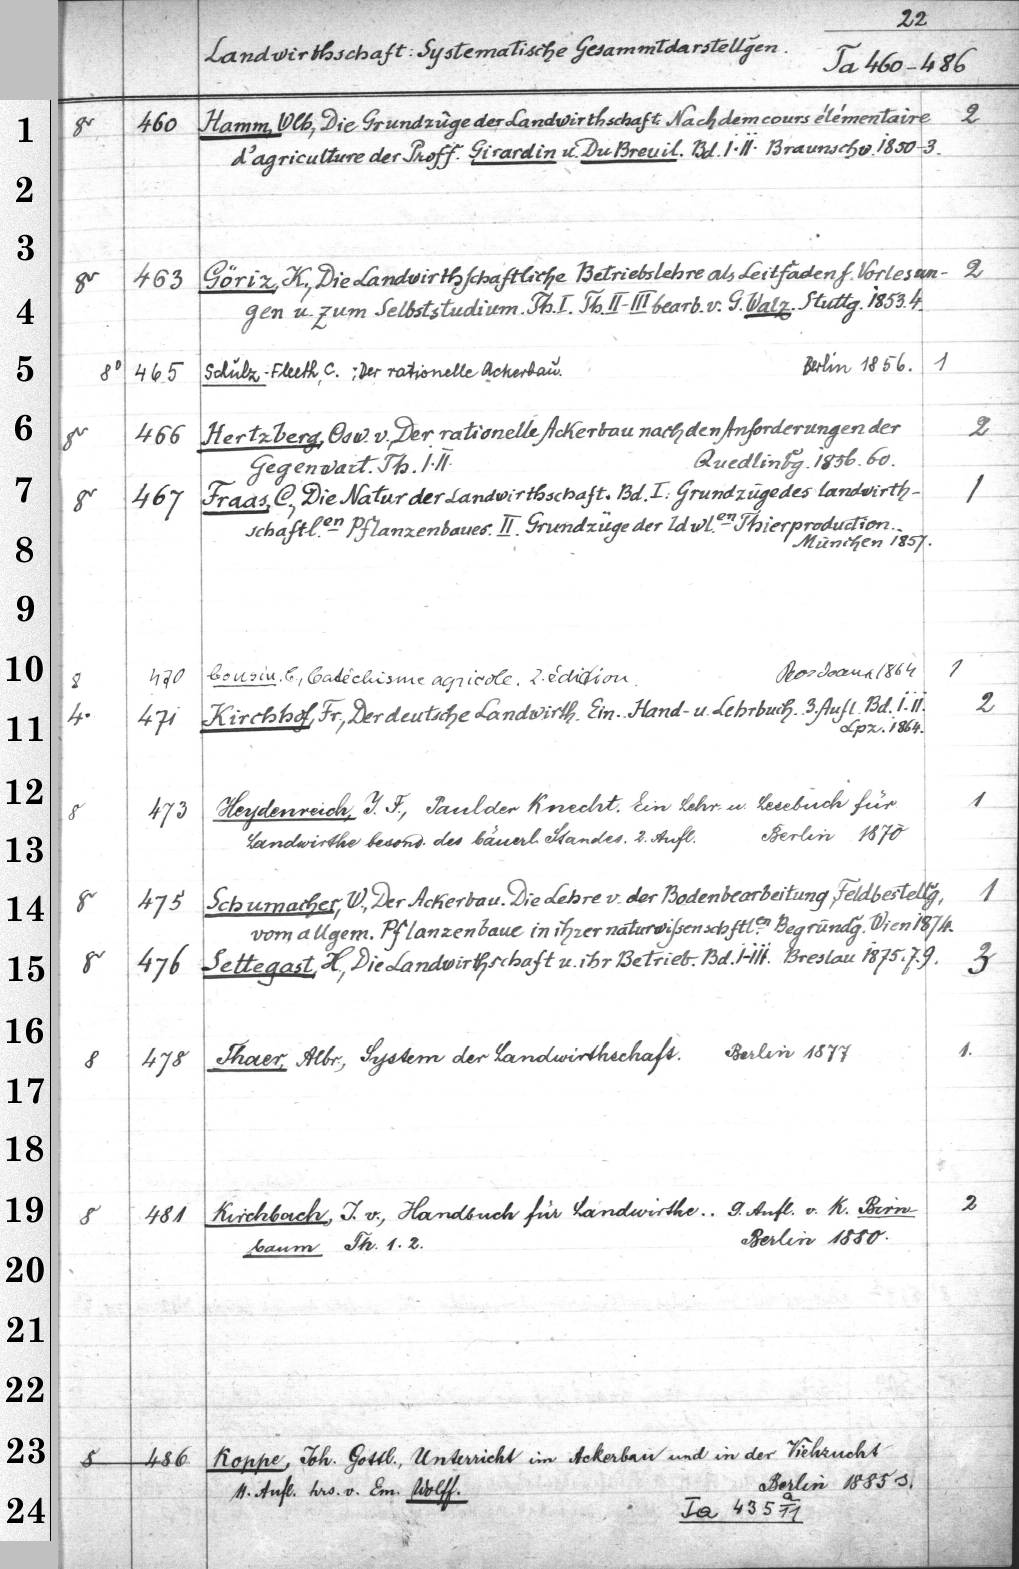 22
Landwirthschaft: Systematische Gesammtdarstellgen.
Ta 460-486
1
8r 460 Hamm, Wlh, Die Grundzüge der Landwirthschaft. Nach dem cours élémentaire 2
d'agriculture der Proff. Girardin u. Du Breuil. Bd. I.II. Braunschw. 1850-3.
2
3
8r 463 Göriz, K., Die Landwirthschaftliche Betriebslehre als Leitfaden f. Vorlesun- 2
4
gen u. zum Selbststudium. Th. I. Th. II-III bearb. v. G. Walz. Stuttg. 1853.4.
5
8° 465 Schulz-Fleeth, C.; Der rationelle Ackerbau. Berlin 1856. 1
6
8r 466 Hertzberg, Osw. v., Der rationelle Ackerbau nach den Anforderungen der 2
Gegenwart. Th. I.II. Quedlinbg. 1856.60.
7
8r 467 Fraas, C., Die Natur der Landwirthschaft. Bd. I: Grundzüge des landwirth- 1
schaftl.en Pflanzenbaues. II. Grundzüge der ldwl.en Thierproduction.
8
München 1857.
9
10
8 470 Cousin, C., Catéchisme agricole. 2. édition. Bordeaux 1864 1
11
4° 471 Kirchhof, Fr., Der deutsche Landwirth. Ein Hand- u. Lehrbuch. 3. Aufl. Bd. I.II. 2
Lpz. 1864.
12
8 473 Heydenreich, J. F., Paul der Knecht. Ein Lehr- u. Lesebuch für 1
13
Landwirthe besond. des bäuerl. Standes. 2. Aufl. Berlin 1870
14
8r 475 Schumacher, W., Der Ackerbau. Die Lehre v. der Bodenbearbeitung, Feldbestellg, 1
vom allgem. Pflanzenbaue in ihrer naturwissenschftl.en Begründg. Wien 1874.
15
8r 476 Settegast, H., Die Landwirthschaft u. ihr Betrieb. Bd. I-III. Breslau 1875.7.9. 3
16
8 478 Thaer, Albr., System der Landwirthschaft. Berlin 1877 1.
17
18
19
8 481 Kirchbach, J. v., Handbuch für Landwirthe.. 9. Aufl. v. K. Birn- 2
baum Th. 1. 2. Berlin 1880.
20
21
22
23
8 486 Koppe, Joh. Gottl., Unterricht im Ackerbau und in der Viehzucht
11. Aufl. hrs. v. Em. Wolff. Berlin 1885 8.
24
Ta 435 a/11